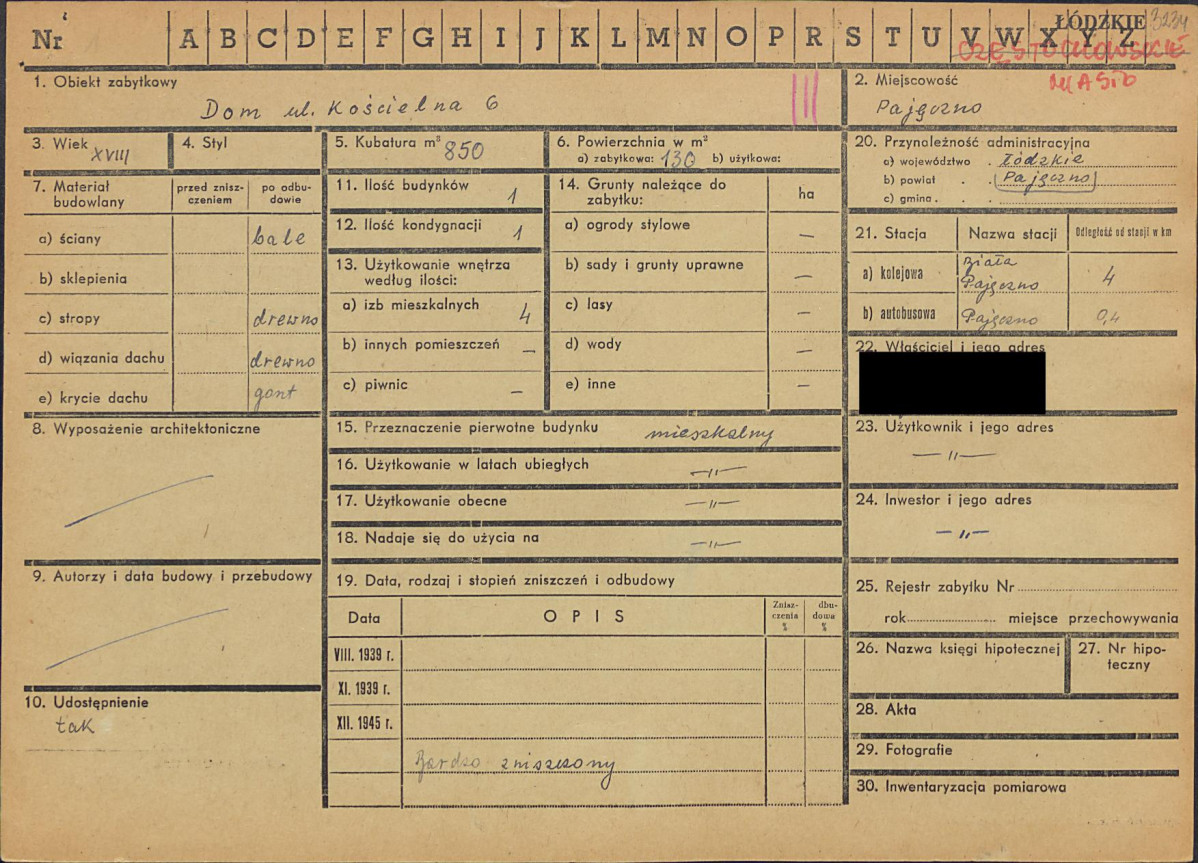 Nr A B C D E F G H I J K L M N O P R S T U V W X Y Z
ŁÓDZKIE 3234
CZĘSTOCHOWSKIE
MIASTO
1. Obiekt zabytkowy
Dom ul. Kościelna 6
III
2. Miejscowość
Pajęczno
3. Wiek XVIII
4. Styl
5. Kubatura m³ 850
6. Powierzchnia w m²
a) zabytkowa: 130 b) użytkowa:
7. Materiał budowlany
przed zniszczeniem
po odbudowie
a) ściany bale
b) sklepienia
c) stropy drewno
d) wiązania dachu drewno
e) krycie dachu gont
8. Wyposażenie architektoniczne
9. Autorzy i data budowy i przebudowy
10. Udostępnienie
tak
11. Ilość budynków 1
12. Ilość kondygnacji 1
13. Użytkowanie wnętrza
według ilości:
a) izb mieszkalnych 4
b) innych pomieszczeń —
c) piwnic —
14. Grunty należące do
zabytku:
ha
a) ogrody stylowe —
b) sady i grunty uprawne —
c) lasy —
d) wody —
e) inne —
15. Przeznaczenie pierwotne budynku mieszkalny
16. Użytkowanie w latach ubiegłych —"—
17. Użytkowanie obecne —"—
18. Nadaje się do użycia na —"—
19. Data, rodzaj i stopień zniszczeń i odbudowy
Data OPIS Zniszczenia % dbudowa %
VIII. 1939 r.
XI. 1939 r.
XII. 1945 r.
Bardzo zniszczony
20. Przynależność administracyjna
a) województwo . Łódzkie
b) powiat . . Pajęczno
c) gmina . . .
21. Stacja Nazwa stacji Odległość od stacji w km
a) kolejowa Biała Pajęczno 4
b) autobusowa Pajęczno 0,4
22. Właściciel i jego adres
23. Użytkownik i jego adres
—"—
24. Inwestor i jego adres
—"—
25. Rejestr zabytku Nr
rok miejsce przechowywania
26. Nazwa księgi hipotecznej
27. Nr hipoteczny
28. Akta
29. Fotografie
30. Inwentaryzacja pomiarowa